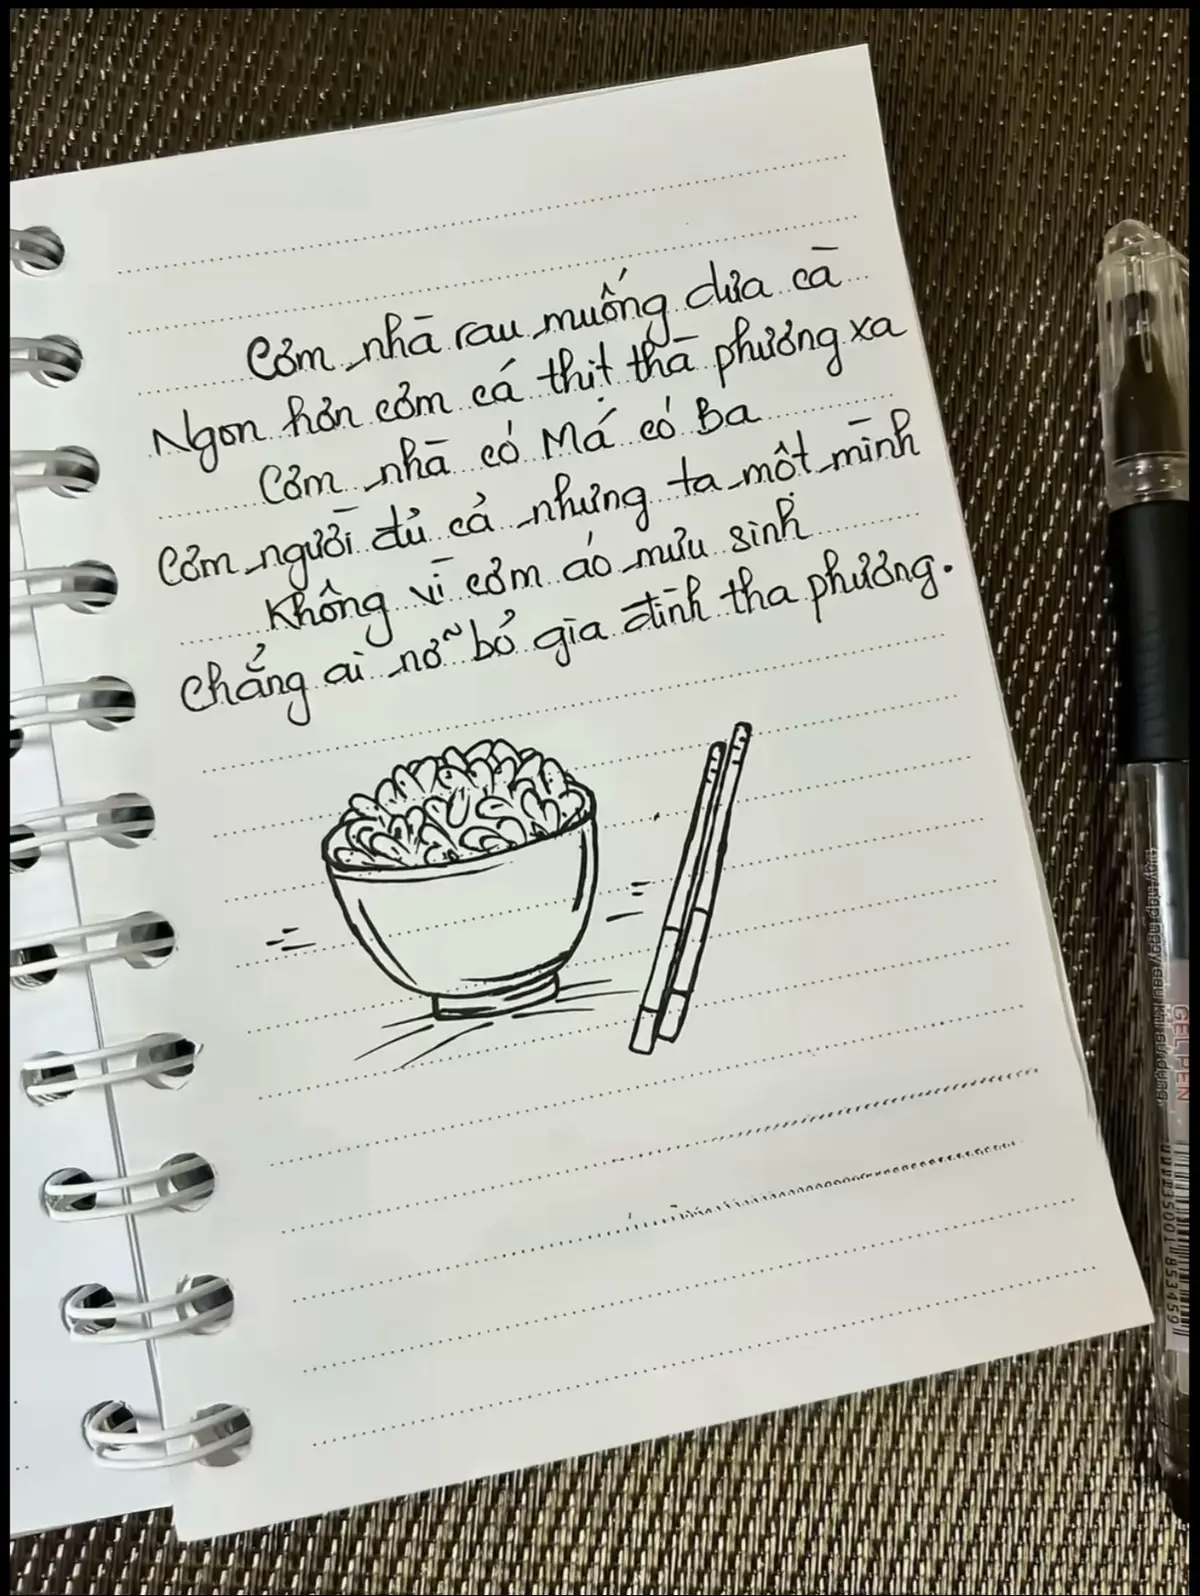 Cơm nhà rau muống dưa cà
Ngon hơn cơm cá thịt thà phương xa
Cơm nhà có Má có Ba
Cơm người đủ cả nhưng ta một mình
Không vì cơm áo mưu sinh
Chẳng ai nỡ bỏ gia đình tha phương.
GEL PEN